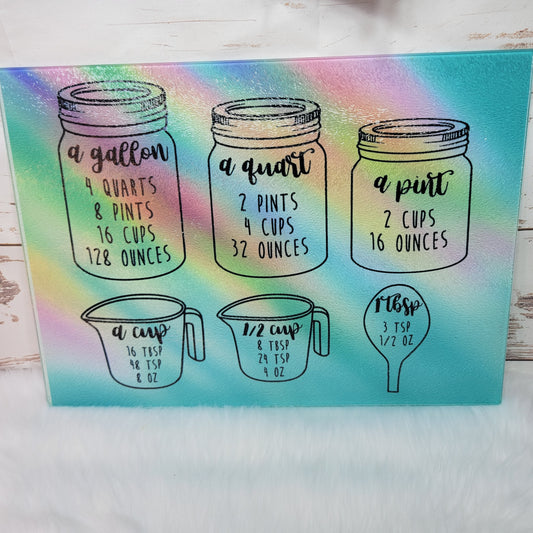 a gallon
4 QUARTS
8 PINTS
16 CUPS
128 OUNCES
a quart
2 PINTS
4 CUPS
32 OUNCES
a pint
2 CUPS
16 OUNCES
a cup
16 TBSP
48 TSP
8 OZ
1/2 cup
8 TBSP
24 TSP
4 OZ
1 tbsp
3 TSP
1/2 OZ